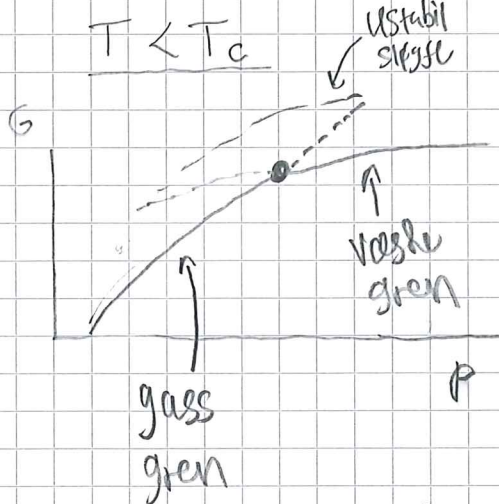 T < Tc
ustabil
sløyfe
G
væske
gren
P
gass
gren